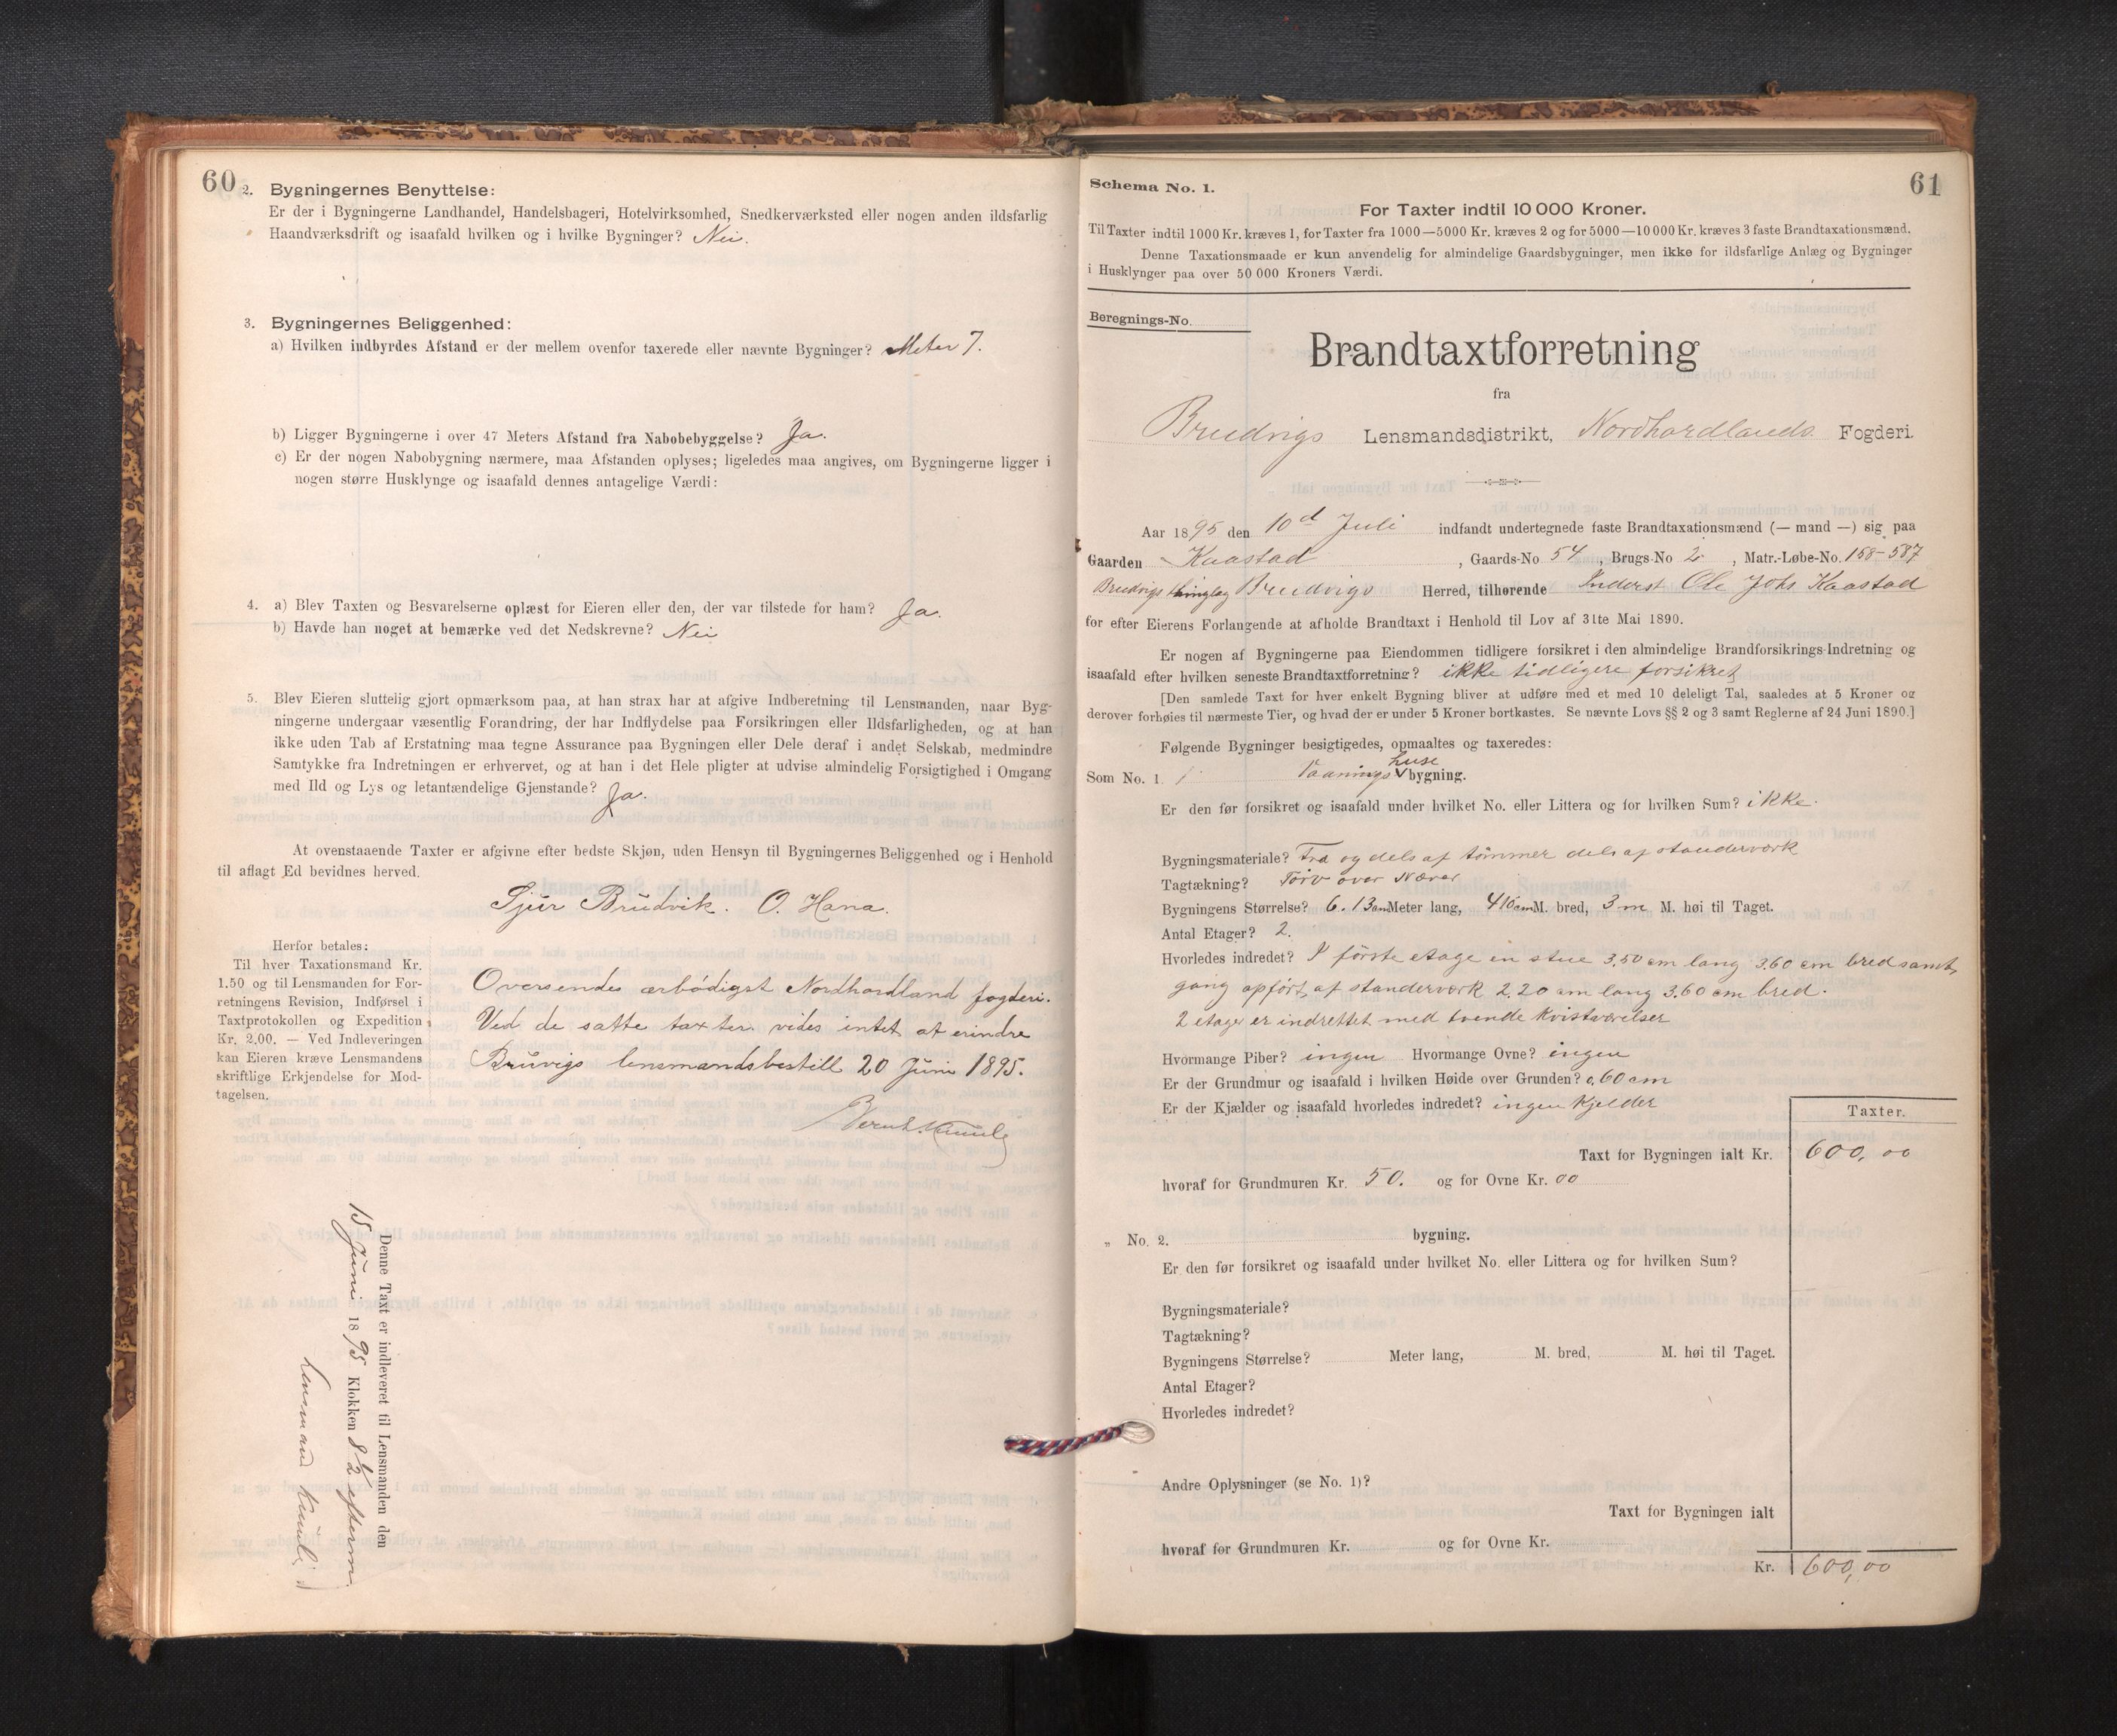 60
2. Bygningernes Benyttelse:
Er der i Bygningerne Landhandel, Handelsbageri, Hotelvirksomhed, Snedkerværksted eller nogen anden ildsfarlig
Haandværksdrift og isaafald hvilken og i hvilke Bygninger? Nei.
3. Bygningernes Beliggenhed:
a) Hvilken indbyrdes Afstand er der mellem ovenfor taxerede eller nævnte Bygninger? Meter 7.
b) Ligger Bygningerne i over 47 Meters Afstand fra Nabobebyggelse? Ja.
c) Er der nogen Nabobygning nærmere, maa Afstanden oplyses; ligeledes maa angives, om Bygningerne ligger i
nogen større Husklynge og isaafald dennes antagelige Værdi:
4. a) Blev Taxten og Besvarelserne oplæst for Eieren eller den, der var tilstede for ham? Ja.
b) Havde han noget at bemærke ved det Nedskrevne? Nei
5. Blev Eieren sluttelig gjort opmærksom paa, at han strax har at afgive Indberetning til Lensmanden, naar Byg-
ningerne undergaar væsentlig Forandring, der har Indflydelse paa Forsikringen eller Ildsfarligheden, og at han
ikke uden Tab af Erstatning maa tegne Assurance paa Bygningen eller Dele deraf i andet Selskab, medmindre
Samtykke fra Indretningen er erhvervet, og at han i det Hele pligter at udvise almindelig Forsigtighed i Omgang
med Ild og Lys og letantændelige Gjenstande? Ja.
At ovenstaaende Taxter er afgivne efter bedste Skjøn, uden Hensyn til Bygningernes Beliggenhed og i Henhold
til aflagt Ed bevidnes herved.
Sjur Brudvik. O. Hana.
Herfor betales:
Til hver Taxationsmand Kr.
1.50 og til Lensmanden for For-
retningens Revision, Indførsel i
Taxtprotokollen og Expedition
Kr. 2.00. — Ved Indleveringen
kan Eieren kræve Lensmandens
skriftlige Erkjendelse for Mod-
tagelsen.
Oversendes ærbödigst Nordhordland fogderi.
Ved de satte taxter vides intet at erindre
Bruvigs lensmandsbestill 20 Juni 1895.
Denne Taxt er indleveret til Lensmanden den
15 Juni 1895 Klokken 8 1/2 efterm.
Lensmand
61
Schema No. 1.
For Taxter indtil 10 000 Kroner.
Til Taxter indtil 1000 Kr. kræves 1, for Taxter fra 1000—5000 Kr. kræves 2 og for 5000—10 000 Kr. kræves 3 faste Brandtaxationsmænd.
Denne Taxationsmaade er kun anvendelig for almindelige Gaardsbygninger, men ikke for ildsfarlige Anlæg og Bygninger
i Husklynger paa over 50 000 Kroners Værdi.
Beregnings-No.
Brandtaxtforretning
fra
Brudvigs Lensmandsdistrikt, Nordhordlands Fogderi.
Aar 1895 den 10d Juli indfandt undertegnede faste Brandtaxationsmænd (— mand —) sig paa
Gaarden Kaastad, Gaards-No 54, Brugs-No 2, Matr.-Løbe-No. 168-587
Brudvigs thinglag Brudvigs Herred, tilhørende Inderst Ole Johs Kaastad
for efter Eierens Forlangende at afholde Brandtaxt i Henhold til Lov af 31te Mai 1890.
Er nogen af Bygningerne paa Eiendommen tidligere forsikret i den almindelige Brandforsikrings-Indretning og
isaafald efter hvilken seneste Brandtaxtforretning? ikke tidligere forsikret
[Den samlede Taxt for hver enkelt Bygning bliver at udføre med et med 10 deleligt Tal, saaledes at 5 Kroner og
derover forhøies til nærmeste Tier, og hvad der er under 5 Kroner bortkastes. Se nævnte Lovs §§ 2 og 3 samt Reglerne af 24 Juni 1890.]
Følgende Bygninger besigtigedes, opmaaltes og taxeredes:
Som No. 1. 1 Vaanings huse bygning.
Er den før forsikret og isaafald under hvilket No. eller Littera og for hvilken Sum? ikke.
Bygningsmateriale? Træ og dels af tömmer dels af standerværk
Tagtækning? Törv over Næver
Bygningens Størrelse? 6.13 cm Meter lang, 416 cm M. bred, 3 m M. høi til Taget.
Antal Etager? 2.
Hvorledes indredet? I förste etage en stue 3,50 cm lang 3,60 cm bred samt
gang opfört af standerværk 2,20 cm lang 3,60 cm bred.
2 etage er indrettet med tvende kvistværelser
Hvormange Piber? ingen Hvormange Ovne? ingen
Er der Grundmur og isaafald i hvilken Høide over Grunden? 0,60 cm
Er der Kjælder og isaafald hvorledes indredet? ingen Kjelder
Taxter.
Taxt for Bygningen ialt Kr. 600,00
hvoraf for Grundmuren Kr. 50. og for Ovne Kr. 00
„ No. 2. bygning.
Er den før forsikret og isaafald under hvilket No. eller Littera og for hvilken Sum?
Bygningsmateriale?
Tagtækning?
Bygningens Størrelse? Meter lang, M. bred, M. høi til Taget.
Antal Etager?
Hvorledes indredet?
Andre Oplysninger (se No. 1)?
Taxt for Bygningen ialt
hvoraf for Grundmuren Kr. og for Ovne Kr.
Kr. 600,00